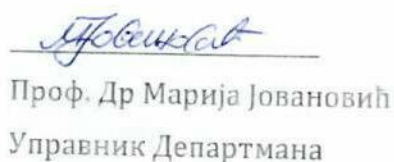 Проф. Др Марија Јовановић
Управник Департмана